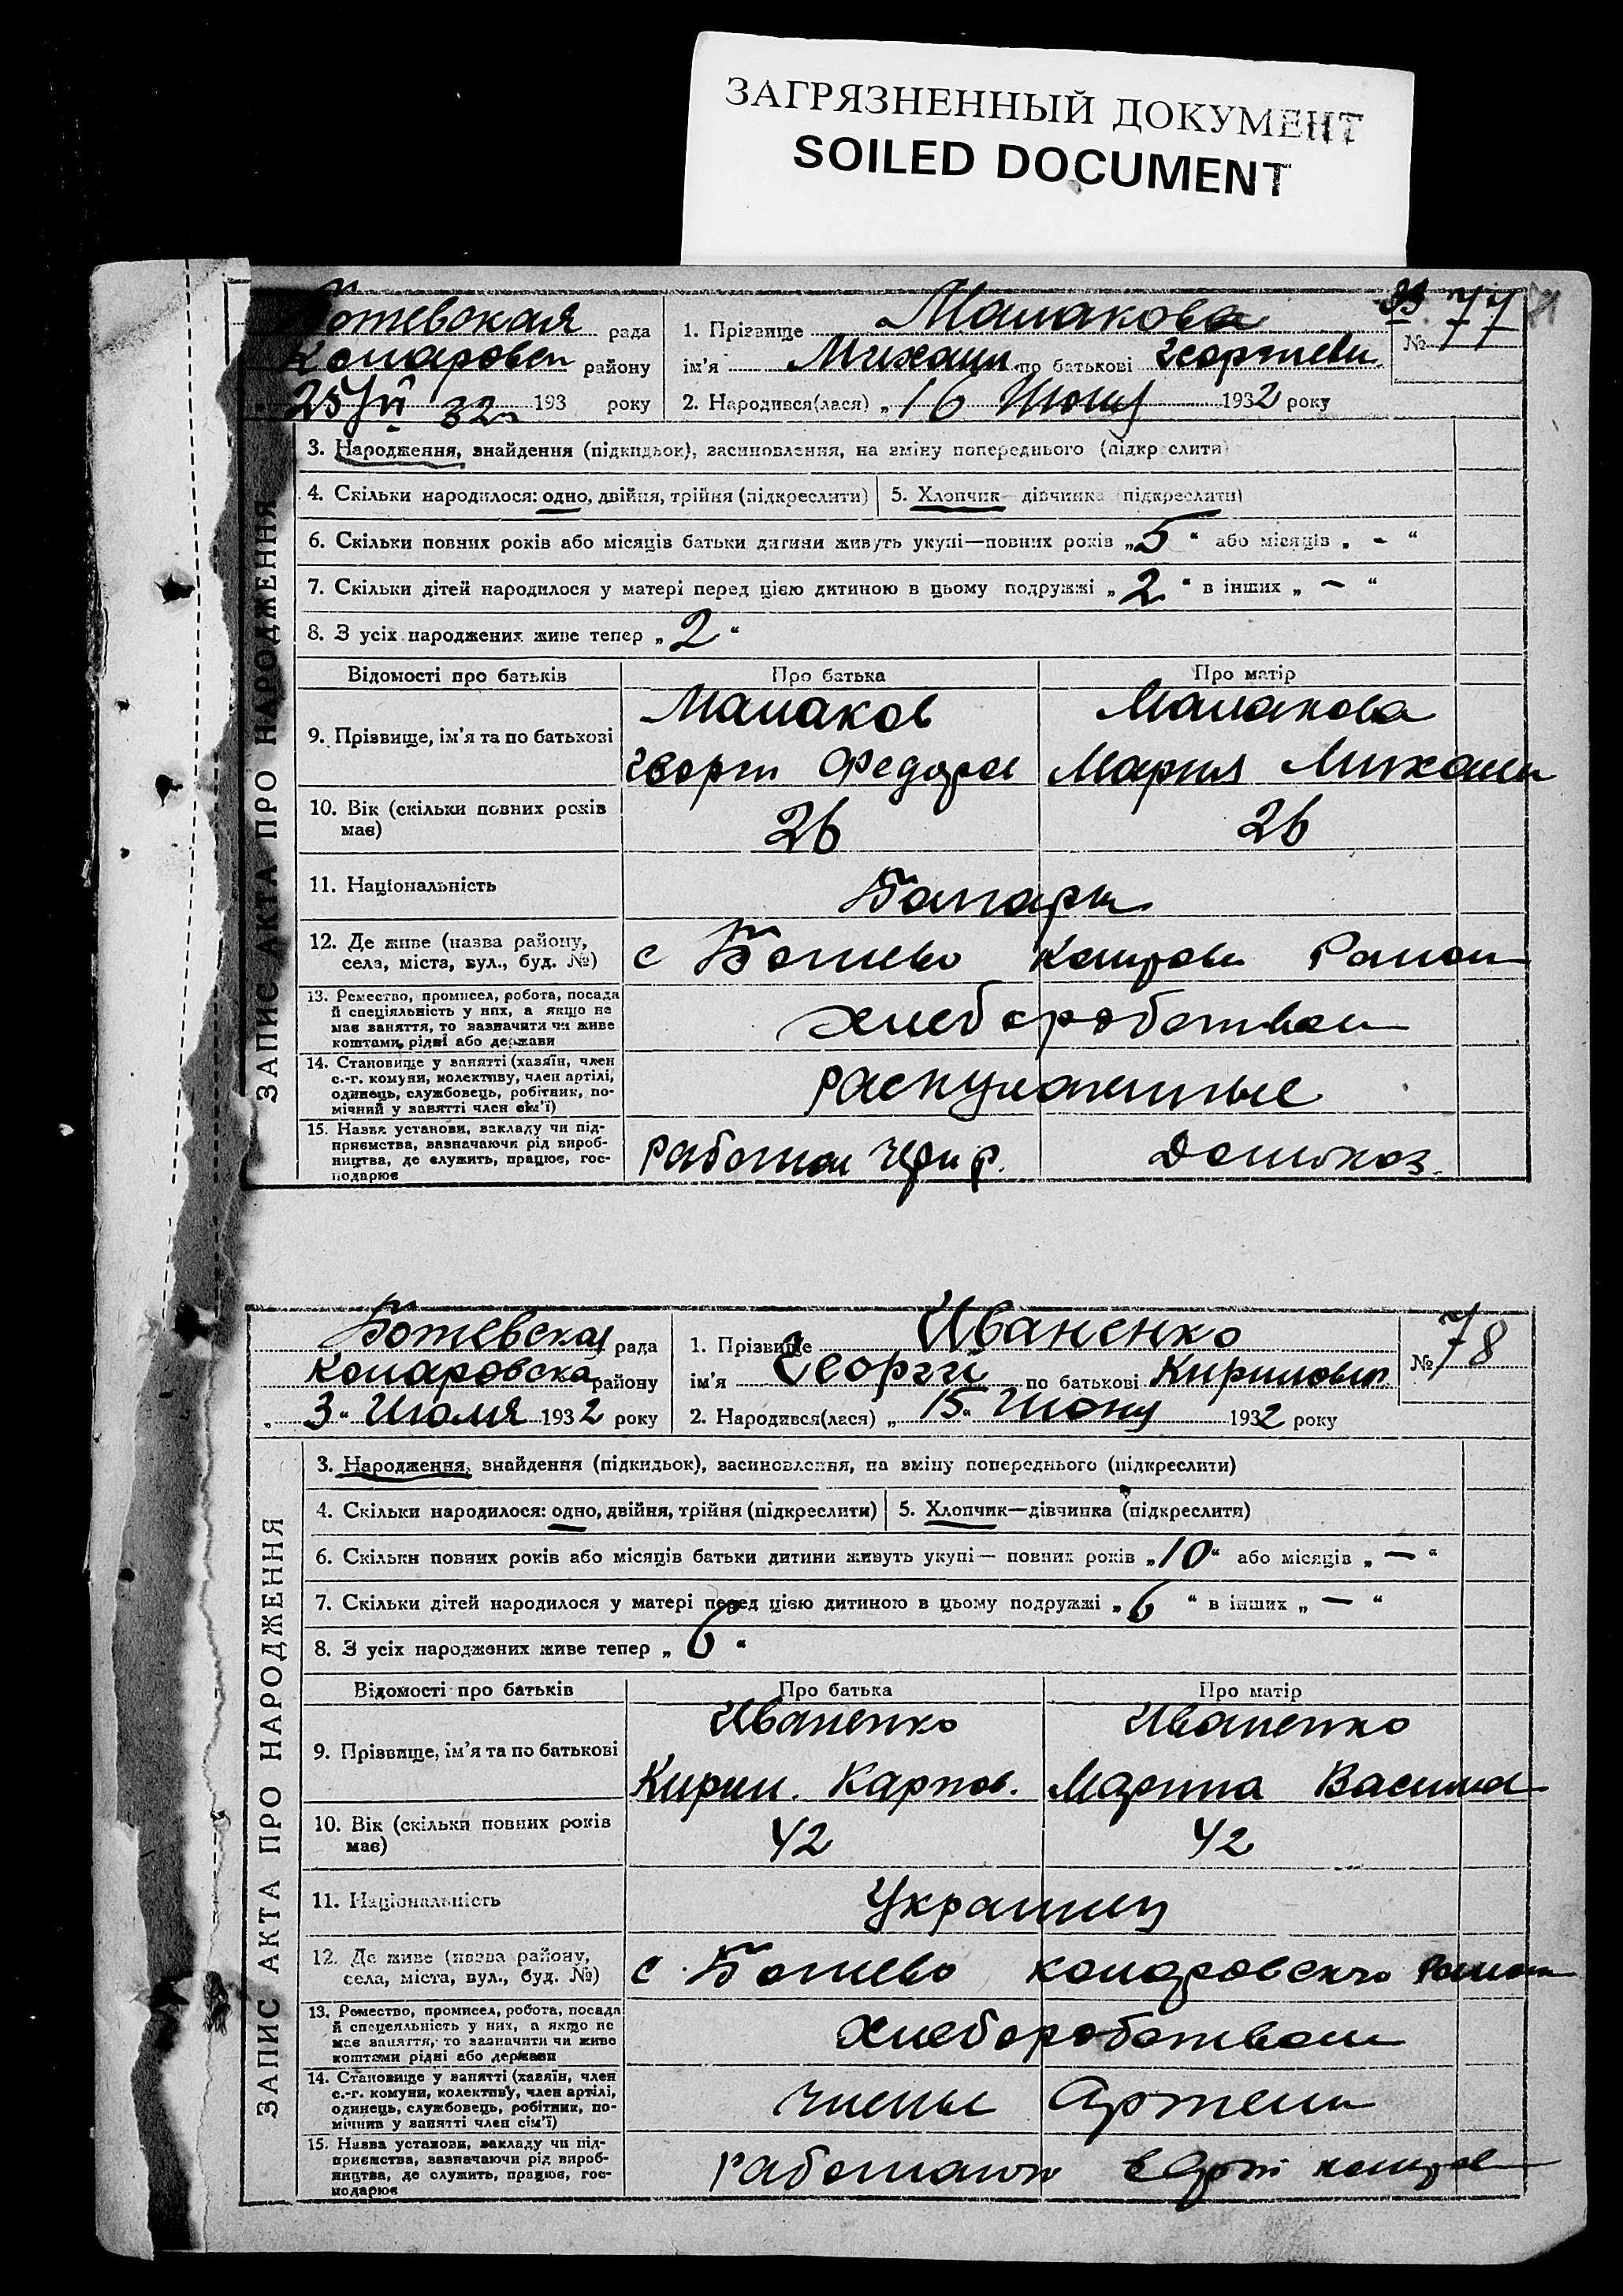 ЗАГРЯЗНЕННЫЙ ДОКУМЕНТ
SOILED DOCUMENT
Ботевская рада
1. Прізвище Малакова
№ 77
района
Коларовск району
ім'я Михаил по батькові Георгиеви
25/VI 32 193 року
2. Народився(лася) „ 16 Июня 1932 року
ЗАПИС АКТА ПРО НАРОДЖЕННЯ
3. Народження, знайдення (підкидьок), засиновлення, на зміну попереднього (підкреслити)
4. Скільки народилося: одно, двійня, трійня (підкреслити)
5. Хлопчик—дівчинка (підкреслити)
6. Скільки повних років або місяців батьки дитини живуть укупі—повних років „5“ або місяців „-“
7. Скільки дітей народилося у матері перед цією дитиною в цьому подружжі „2“ в інших „—“
8. З усіх народжених живе тепер „2“
Відомості про батьків
Про батька
Про матір
9. Прізвище, ім'я та по батькові
Малаков
Георги Федоров
Малакова
Мария Михаил
10. Вік (скільки повних років має)
26
26
11. Національність
Болгары
12. Де живе (назва району,
села, міста, вул., буд. №)
с Ботиево Коларов Район
13. Ремество, промисел, робота, посада
й спеціяльність у них, а якщо не
має заняття, то зазначити чи живе
коштами рідні або держави
хлеборобством
14. Становище у занятті (хазяїн, член
с.-г. комуни, колективу, член артілі,
одинець, службовець, робітник, по-
мічний у занятті член сім'ї)
раскулаченные
15. Назва установи, закладу чи під-
приємства, зазначаючи рід вироб-
ництва, де служить, працює, гос-
подарює
Домохоз.
Ботевская рада
1. Прізвище Иваненко
№ 78
Коларовска району
ім'я Георгий по батькові Кирилович
„3“ Июля 1932 року
2. Народився(лася) „15“ Июня 1932 року
ЗАПИС АКТА ПРО НАРОДЖЕННЯ
3. Народження, знайдення (підкидьок), засиновлення, на зміну попереднього (підкреслити)
4. Скільки народилося: одно, двійня, трійня (підкреслити)
5. Хлопчик—дівчинка (підкреслити)
6. Скільки повних років або місяців батьки дитини живуть укупі— повних років „10“ або місяців „—“
7. Скільки дітей народилося у матері перед цією дитиною в цьому подружжі „6“ в інших „—“
8. З усіх народжених живе тепер „6“
Відомості про батьків
Про батька
Про матір
9. Прізвище, ім'я та по батькові
Иваненко
Кирил. Карпов.
Иваненко
Марта Василев
10. Вік (скільки повних років має)
42
42
11. Національність
Украинец
12. Де живе (назва району,
села, міста, вул., буд. №)
с. Ботиево Коларовского Район
13. Ремество, промисел, робота, посада
й спецеяльність у них, а якщо не
має заняття, то зазначити чи живе
коштами рідні або держави
хлеборобством
14. Становище у занятті (хазяїн, член
с.-г. комуни, колективу, член артілі,
одинець, службовець, робітник, по-
мічнив у занятті член сім'ї)
члены Артели
15. Назва установи, закладу чи під-
приємства, зазначаючи рід вироб-
ництва, де служить, працює, гос-
подарює
работают в Арт Коларов